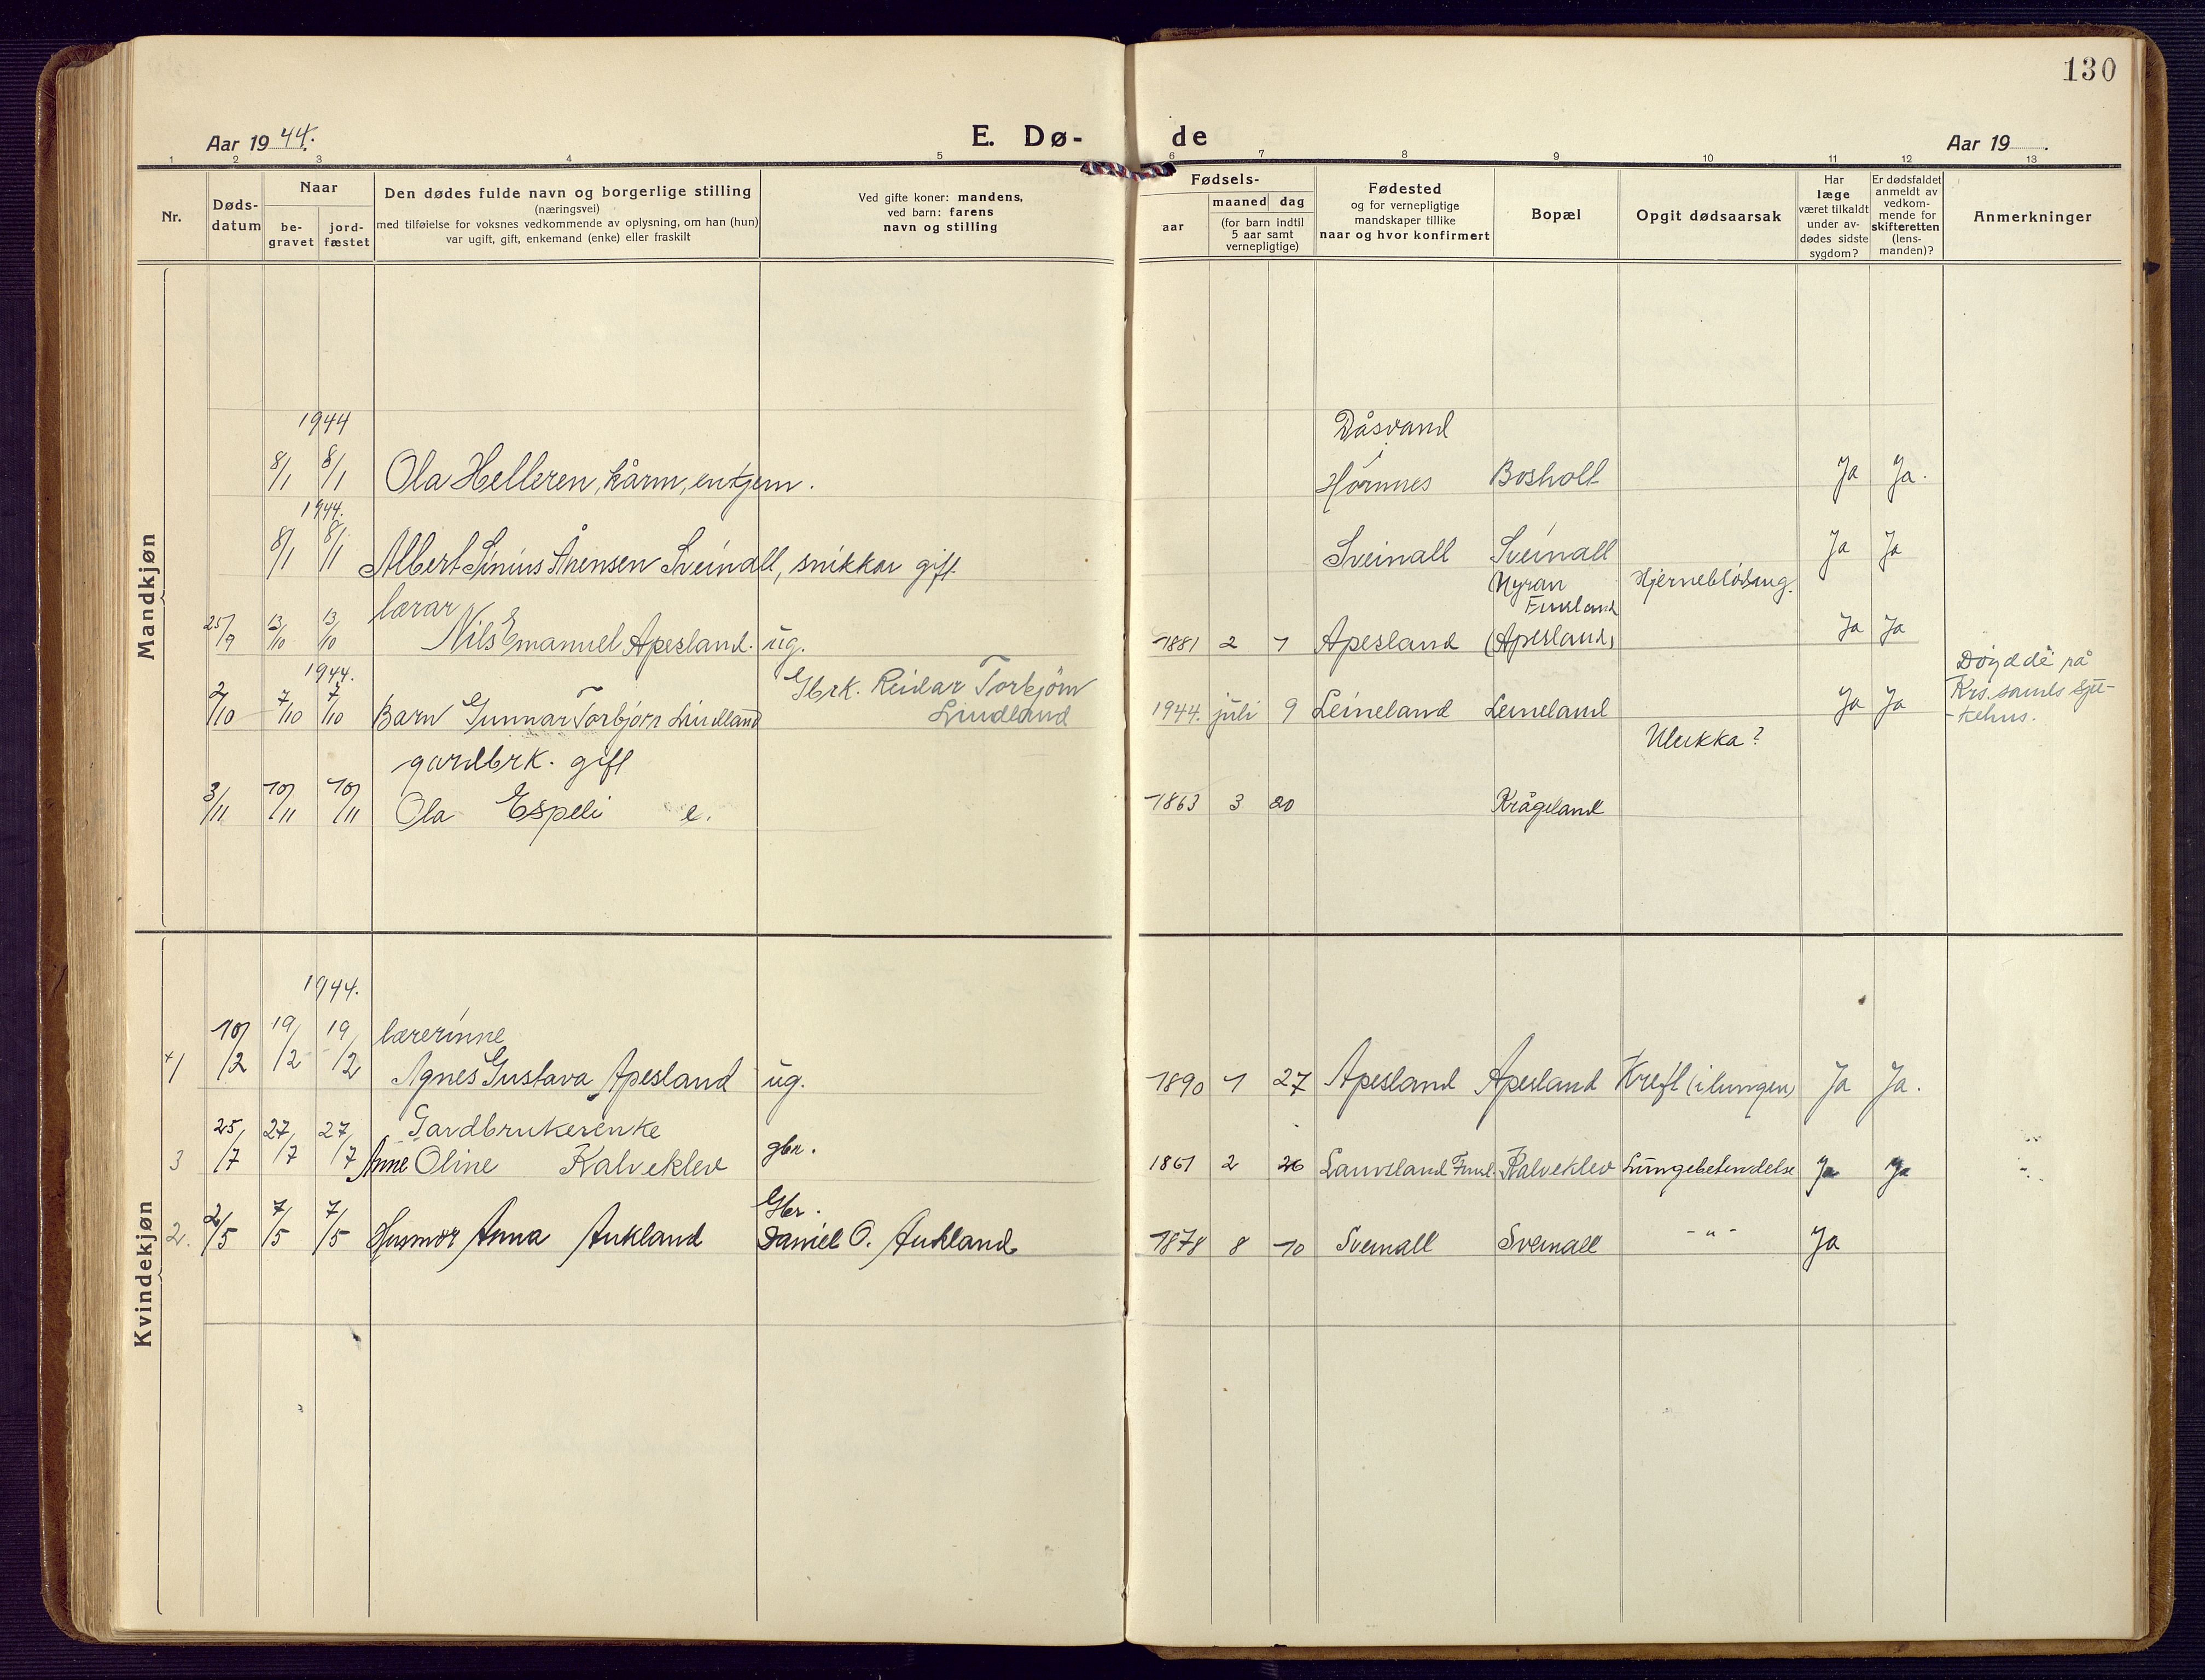 130
Aar 1944. E. Dø- de Aar 19
1 2 3 4 5 6 7 8 9 10 11 12 13
Nr.
Døds-
datum
Naar
be-
gravet
jord-
fæstet
Den dødes fulde navn og borgerlige stilling
(næringsvei)
med tilføielse for voksnes vedkommende av oplysning, om han (hun)
var ugift, gift, enkemand (enke) eller fraskilt
Ved gifte koner: mandens,
ved barn: farens
navn og stilling
Fødsels-
aar
maaned dag
(for barn indtil
5 aar samt
vernepligtige)
Fødested
og for vernepligtige
mandskaper tillike
naar og hvor konfirmert
Bopæl
Opgit dødsaarsak
Har
læge
været tilkaldt
under av-
dødes sidste
sygdom?
Er dødsfaldet
anmeldt av
vedkom-
mende for
skifteretten
(lens-
manden)?
Anmerkninger
Mandkjøn
1944 Dåsvand
8/1 8/1 Ola Helleren, kårm, enkjem. Hornnes Bosholt Ja Ja.
1944.
8/1 8/1 Albert Sinius Ånensen Sveinall, snikkar gift Sveinall Sveinall Ja Ja
lærar (Myran Finsland Hjerneblödning.
25/9 13/10 13/10 Nils Emanuel Apesland. ug. 1881 2 7 Apesland (Apesland) Ja Ja
1944. Gbrk. Reidar Torbjörn Döydde på
2/10 7/10 7/10 Barn Gunnar Torbjörn Lindland Lindland 1944. juli 9 Leineland Leineland Ja Ja Krs. sands sju-
-kehus.
gardbrk. gift Ulukka?
3/11 10/11 10/11 Ola Espeli e. 1863 3 20 Krågeland
Kvindekjøn
1944.
lærerinne
+1 10/2 19/2 19/2 Agnes Gustava Apesland ug. 1890 1 27 Apesland Apesland Kreft (i lungen) Ja Ja.
Gardbrukerenke gbr.
3 25/7 27/7 27/7 Anne Oline Kalveklev 1861 2 26 Lauvsland Finsl. Kalveklev Lungebetendelse Ja Ja
Gbr.
2. 2/5 7/5 7/5 Husmor Anna Aukland Daniel O. Aukland 1878 8 10 Sveinall Sveinall - " - Ja